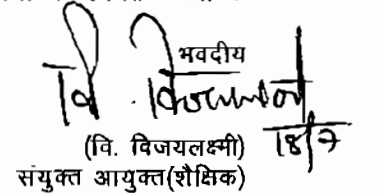 भवदीय
वि. विजयलक्ष्मी
18/7
(वि. विजयलक्ष्मी)
संयुक्त आयुक्त(शैक्षिक)